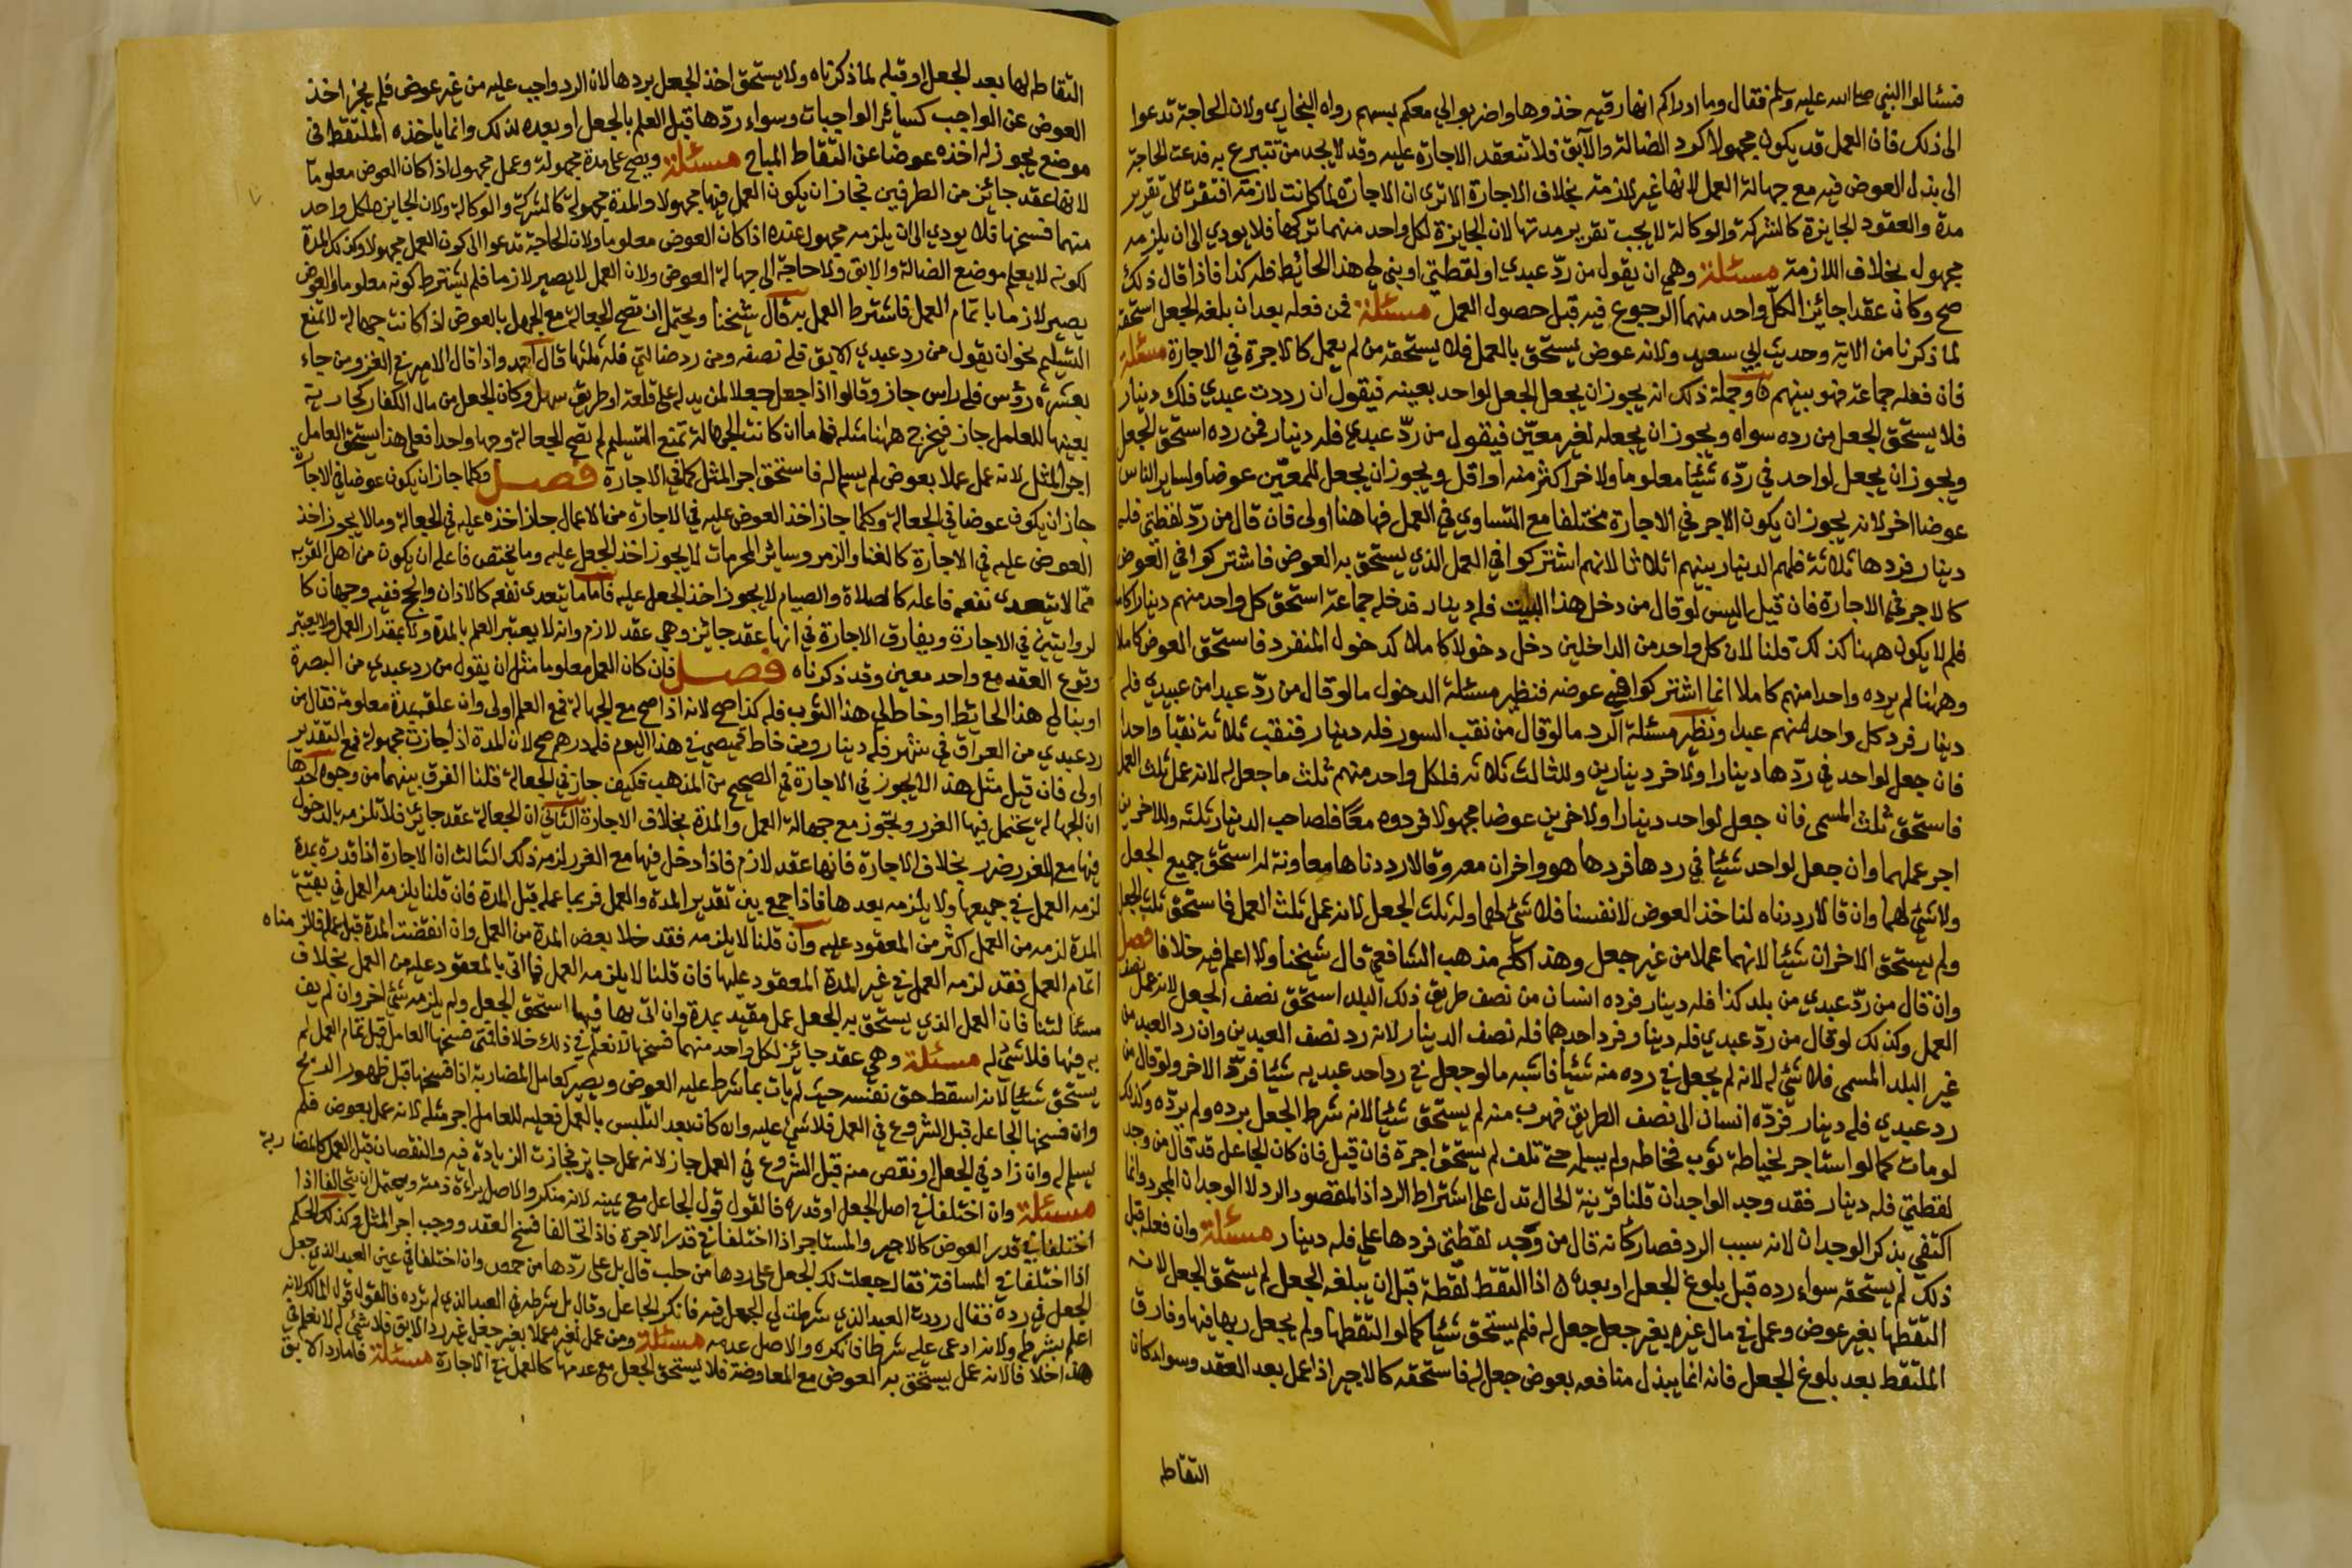 فسئالوا النبي صلى الله عليه وسلم فقال وما ادراكم انها رقيه خذوها واضربوا لي معكم بسهم رواه البخاري ولان الحاجة تدعوا
الى ذلك فان العمل قد يكون مجهولا كرد الضالة والآبق فلا تنعقد الاجارة عليه وقد لا يجد من تتبرع به فدعت الحاجة
الى بذل العوض فيه مع جهالة العمل لانها غير لازمة بخلاف الاجارة الا ترى ان الاجارة لما كانت لازمة افتقرت الى تقرير
مدة والعقود الجايزة كالشركة والوكالة لا يجب تقرير مدتها لان الجايزة لكل واحد منهما تركها فلا يودي الى ان يلزمه
مجهول بخلاف اللازمة مسئلة وهي ان يقول من ردّ عبدي او لقطتي او بنى لي هذا الحائيط فله كذا فاذا قال ذلك
صح وكان عقدا جائزا لكل واحد منهما الرجوع فيه قبل حصول العمل مسئلة فمن فعله بعد ان بلغه الجعل استحقه
لما ذكرنا من الاية وحديث ابي سعيد ولانه عوض يستحق بالعمل فلا يستحقه من لم يعمل كالاجرة في الاجارة مسئلة
فان فعله جماعة فهو بينهم وجملة ذلك انه يجوز ان يجعل الجعل لواحد بعينه فيقول ان رددت عبدي فلك دينار
فلا يستحق الجعل من رده سواه ويجوز ان يجعله لغير معيّن فيقول من ردّ عبدي فله دينار فمن رده استحق الجعل
ويجوز ان يجعل لواحد في ردّه شيئا معلوما ولاخر اكثر منه او اقل ويجوز ان يجعل للمعيّن عوضا ولساير الناس
عوضا اخر لانه يجوز ان يكون الاجر في الاجارة مختلفا مع التساوي في العمل فهاهنا اولى فان قال من ردّ لقطتي فله
دينار فردها ثلاثة فلهم الدينار بينهم اثلاثا لانهم اشتركوا في العمل الذي يستحق به العوض فاشتركوا في العوض
كالاجر في الاجارة فان قيل اليس لو قال من دخل هذا البيت فله دينار فدخله جماعة استحق كل واحد منهم دينارا كاملا
فلم لا يكون ههنا كذلك قلنا لان كل واحد من الداخلين دخل دخولا كاملا كدخول المنفرد فاستحق العوض كاملا
وههنا لم يرده واحد منهم كاملا انما اشتركوا في عوضه فنظير مسئلة الدخول ما لو قال من ردّ عبدا من عبيدي فله
دينار فرد كل واحد منهم عبدا ونظير مسئلة الرد ما لو قال من نقب السور فله دينار فنقب ثلاثة نقبا واحدا
فان جعل لواحد في ردّها دينارا ولاخر دينارين وللثالث ثلاثة فلكل واحد منهم ثلث ما جعل له لانه عمل ثلث العمل
فاستحق ثلث المسمى فان جعل لواحد دينارا ولاخرين عوضا مجهولا فردوه معًا فلصاحب الدينار ثلثه وللاخرين
اجر عملهما وان جعل لواحد شيئا في ردها فردها هو واخران معه وقالا رددناها معاونة له استحق جميع الجعل
ولا شي لهما وان قالا رددناه لناخذ العوض لانفسنا فلا شي لهما وله ثلث الجعل لانه عمل ثلث العمل فاستحق ثلث الجعل
ولم يستحق الاخران شيئا لانهما عملا من غير جعل وهذا كله مذهب الشافعي قال شيخنا ولا اعلم فيه خلافا فصل
وان قال من ردّ عبدي من بلد كذا فله دينار فرده انسان من نصف طريق ذلك البلد استحق نصف الجعل لانه عمل نصف
العمل وكذلك لو قال من ردّ عبدي فله دينار فرد احدهما فله نصف الدينار لانه رد نصف العبدين وان رد العبد من
غير البلد المسمى فلا شي له لانه لم يجعل في رده منه شيئا فاشبه ما لو جعل في رد احد عبديه شيئا فردّ الاخر ولو قال من
رد عبدي فله دينار فردّه انسان الى نصف الطريق فهرب منه لم يستحق شيئا لانه شرط الجعل برده ولم يردّه وكذلك
لو مات كما لو استاجر لخياطة ثوب فخاطه ولم يسلمه حتى تلف لم يستحق اجرة فان قيل فان كان الجاعل قد قال من وجد
لقطتي فله دينار فقد وجد الواجدان قلنا قرينة الحال تدل على اشتراط الرد اذ المقصود الرد لا الوجدان المجرد وانما
اكتفي بذكر الوجدان لانه سبب الرد فصار كانه قال من وجد لقطتي فردها علي فله دينار مسئلة وان فعله قبل
ذلك لم يستحقه سواء رده قبل بلوغ الجعل او بعده اذا التقط لقطة قبل ان يبلغه الجعل لم يستحق الجعل لانه
التقطها بغير عوض وعمل في مال غيره بغير جعل جعل له فلم يستحق شيئا كما لو التقطها ولم يجعل ربها فيها وفارق
الملتقط بعد بلوغ الجعل فانه انما يبذل منافعه بعوض جعل له فاستحقه كالاجير اذا عمل بعد العقد وسواء كان
التقاطه
التقاطه لها بعد الجعل او قبله لما ذكرناه ولا يستحق اخذ الجعل بردها لان الرد واجب عليه من غير عوض فلم يجز اخذ
العوض عن الواجب كسائر الواجبات وسواء ردّها قبل العلم بالجعل او بعده لذلك وانما ياخذه الملتقط في
موضع يجوز له اخذه عوضا عن التقاط المباح مسئلة ويصح على مدة مجهولة وعمل مجهول اذا كان العوض معلوما
لانها عقد جائز من الطرفين فجاز ان يكون العمل فيها مجهولا والمدة مجهولة كالشركة والوكالة ولان الجايز لكل واحد
منهما فسخها فلا يودي الى ان يلزمه مجهول عنده اذا كان العوض معلوما ولان الحاجة تدعوا الى كون العمل مجهولا وكذلك المدة
لكونه لا يعلم موضع الضالة والابق ولا حاجة الى جهالة العوض ولان العمل لا يصير لازما فلم يشترط كونه معلوما والعوض
يصير لازما باتمام العمل فاشترط العمل به قال شيخنا ويحتمل ان تصح الجعالة مع الجهل بالعوض اذا كانت جهالة لا تمنع
التسليم نحو ان يقول من رد عبدي الابق فله نصفه ومن رد ضالتي فله ثلثها قال احمد واذا قال الامير في الغزو من جاء
بعشرة رؤس فله راس جاز وقالوا اذا جعل جعلا لمن يدله على قلعة او طريق سهل وكان الجعل من مال الكفار كجارية
بعينها للعامل جاز فيخرج ههنا مثله فاما ان كانت الجهالة تمنع التسليم لم تصح الجعالة وجها واحدا فعلى هذا يستحق العامل
اجر المثل لانه عمل عملا بعوض لم يسلم له فاستحق اجر المثل كما في الاجارة فصل وكلما جاز ان يكون عوضا في الاجارة
جاز ان يكون عوضا في الجعالة وكلما جاز اخذ العوض عليه في الاجارة من الاعمال جاز اخذه عليه في الجعالة وما لا يجوز اخذ
العوض عليه في الاجارة كالغناء والزمر وسائر المحرمات لا يجوز اخذ الجعل عليه وما يختص فاعله ان يكون من اهل القربه
مما لا يتعدى نفعه فاعله كالصلاة والصيام لا يجوز اخذ الجعل عليه فاما ما يتعدى نفعه كالاذان والحج ففيه وجهان كا
لروايتين في الاجارة ويفارق الاجارة في انها عقد جائز وهي عقد لازم وانه لا يعتبر العلم بالمدة ولا بمقدار العمل ولا يعتبر
وقوع العقد مع واحد معين وقد ذكرناه فصل فان كان العمل معلوما مثل ان يقول من رد عبدي من البصرة
او بنا لي هذا الحايط او خاط لي هذا الثوب فله كذا صح لانه اذا صح مع الجهالة فمع العلم اولى وان علقه بمدة معلومة فقال من
رد عبدي من العراق في شهر فله دينار ومن خاط قميصي في هذا اليوم فله درهم صح لان المدة اذا جازت مجهولة فمع التقدير
اولى فان قيل مثل هذا لا يجوز في الاجارة في الصحيح من المذهب فكيف جاز في الجعالة قلنا الفرق بينهما من وجوه احدها
ان الجعالة يحتمل فيها الغرر وتجوز مع جهالة العمل والمدة بخلاف الاجارة الثاني ان الجعالة عقد جائز فلا تلزمه بالدخول
فيها مع الغرر ضرر بخلاف الاجارة فانها عقد لازم فاذا دخل فيها مع الغرر لزمه ذلك الثالث ان الاجارة اذا قدرت بمدة
لزمه العمل في جميعها ولا يلزمه بعدها فاذا جمع بين تقدير المدة والعمل فربما عمله قبل المدة فان قلنا يلزمه العمل في بقية
المدة لزمه من العمل اكثر من المعقود عليه وان قلنا لا يلزمه فقد خلا بعض المدة من العمل وان انقضت المدة قبل عمله فالزمناه
اتمام العمل فقد لزمه العمل في غير المدة المعقود عليها فان قلنا لا يلزمه العمل فما اتى بالمعقود عليه من العمل بخلاف
مسئالتنا فان العمل الذي يستحق به الجعل عمل مقيد بمدة وان اتى به فيها استحق الجعل ولم يلزمه شي اخر وان لم يف
به فيها فلا شي له مسئلة وهي عقد جائز لكل واحد منهما فسخها لا نعلم في ذلك خلافا فمتى فسخها العامل قبل تمام العمل لم
يستحق شيئا لانه اسقط حق نفسه حيث لم يات بما شرط عليه العوض ويصير كعامل المضاربة اذا فسخها قبل ظهور الربح
وان فسخها الجاعل قبل الشروع في العمل فلا شي عليه وان كان بعد التلبس بالعمل فعليه للعامل اجر مثله لانه عمل بعوض فلم
يسلم له وان زاد في الجعل او نقص منه قبل الشروع في العمل جاز لانه عمل جايز فجازت الزيادة فيه والنقصان قبل العمل كالمضاربة
مسئلة وان اختلفا في اصل الجعل او قدره فالقول قول الجاعل مع يمينه لانه منكر والاصل براءة ذمته ويحتمل ان يتحالفا اذا
اختلفا في قدر العوض كالاجير والمستاجر اذا اختلفا في قدر الاجرة فاذا تحالفا فسخ العقد ووجب اجر المثل وكذلك الحكم
اذا اختلفا في المسافة فقال جعلت لك الجعل على ردها من حلب قال بل على ردّها من حمص وان اختلفا في عين العبد الذي جعل
الجعل في رده فقال رددت العبد الذي شرطت لي الجعل فيه فانكر الجاعل وقال بل شرطه في العبد الذي لم ترده فالقول قول المالك لانه
اعلم بشرطه ولانه ادعى عليه شرطا فانكره والاصل عدمه مسئلة ومن عمل لغيره عملا بغير جعل غير رد الابق فلا شي له لا نعلم في
هذا خلافا لانه عمل يستحق به العوض مع المعاوضة فلا يستحق الجعل مع عدمها كالعمل في الاجارة مسئلة فاما رد الابق